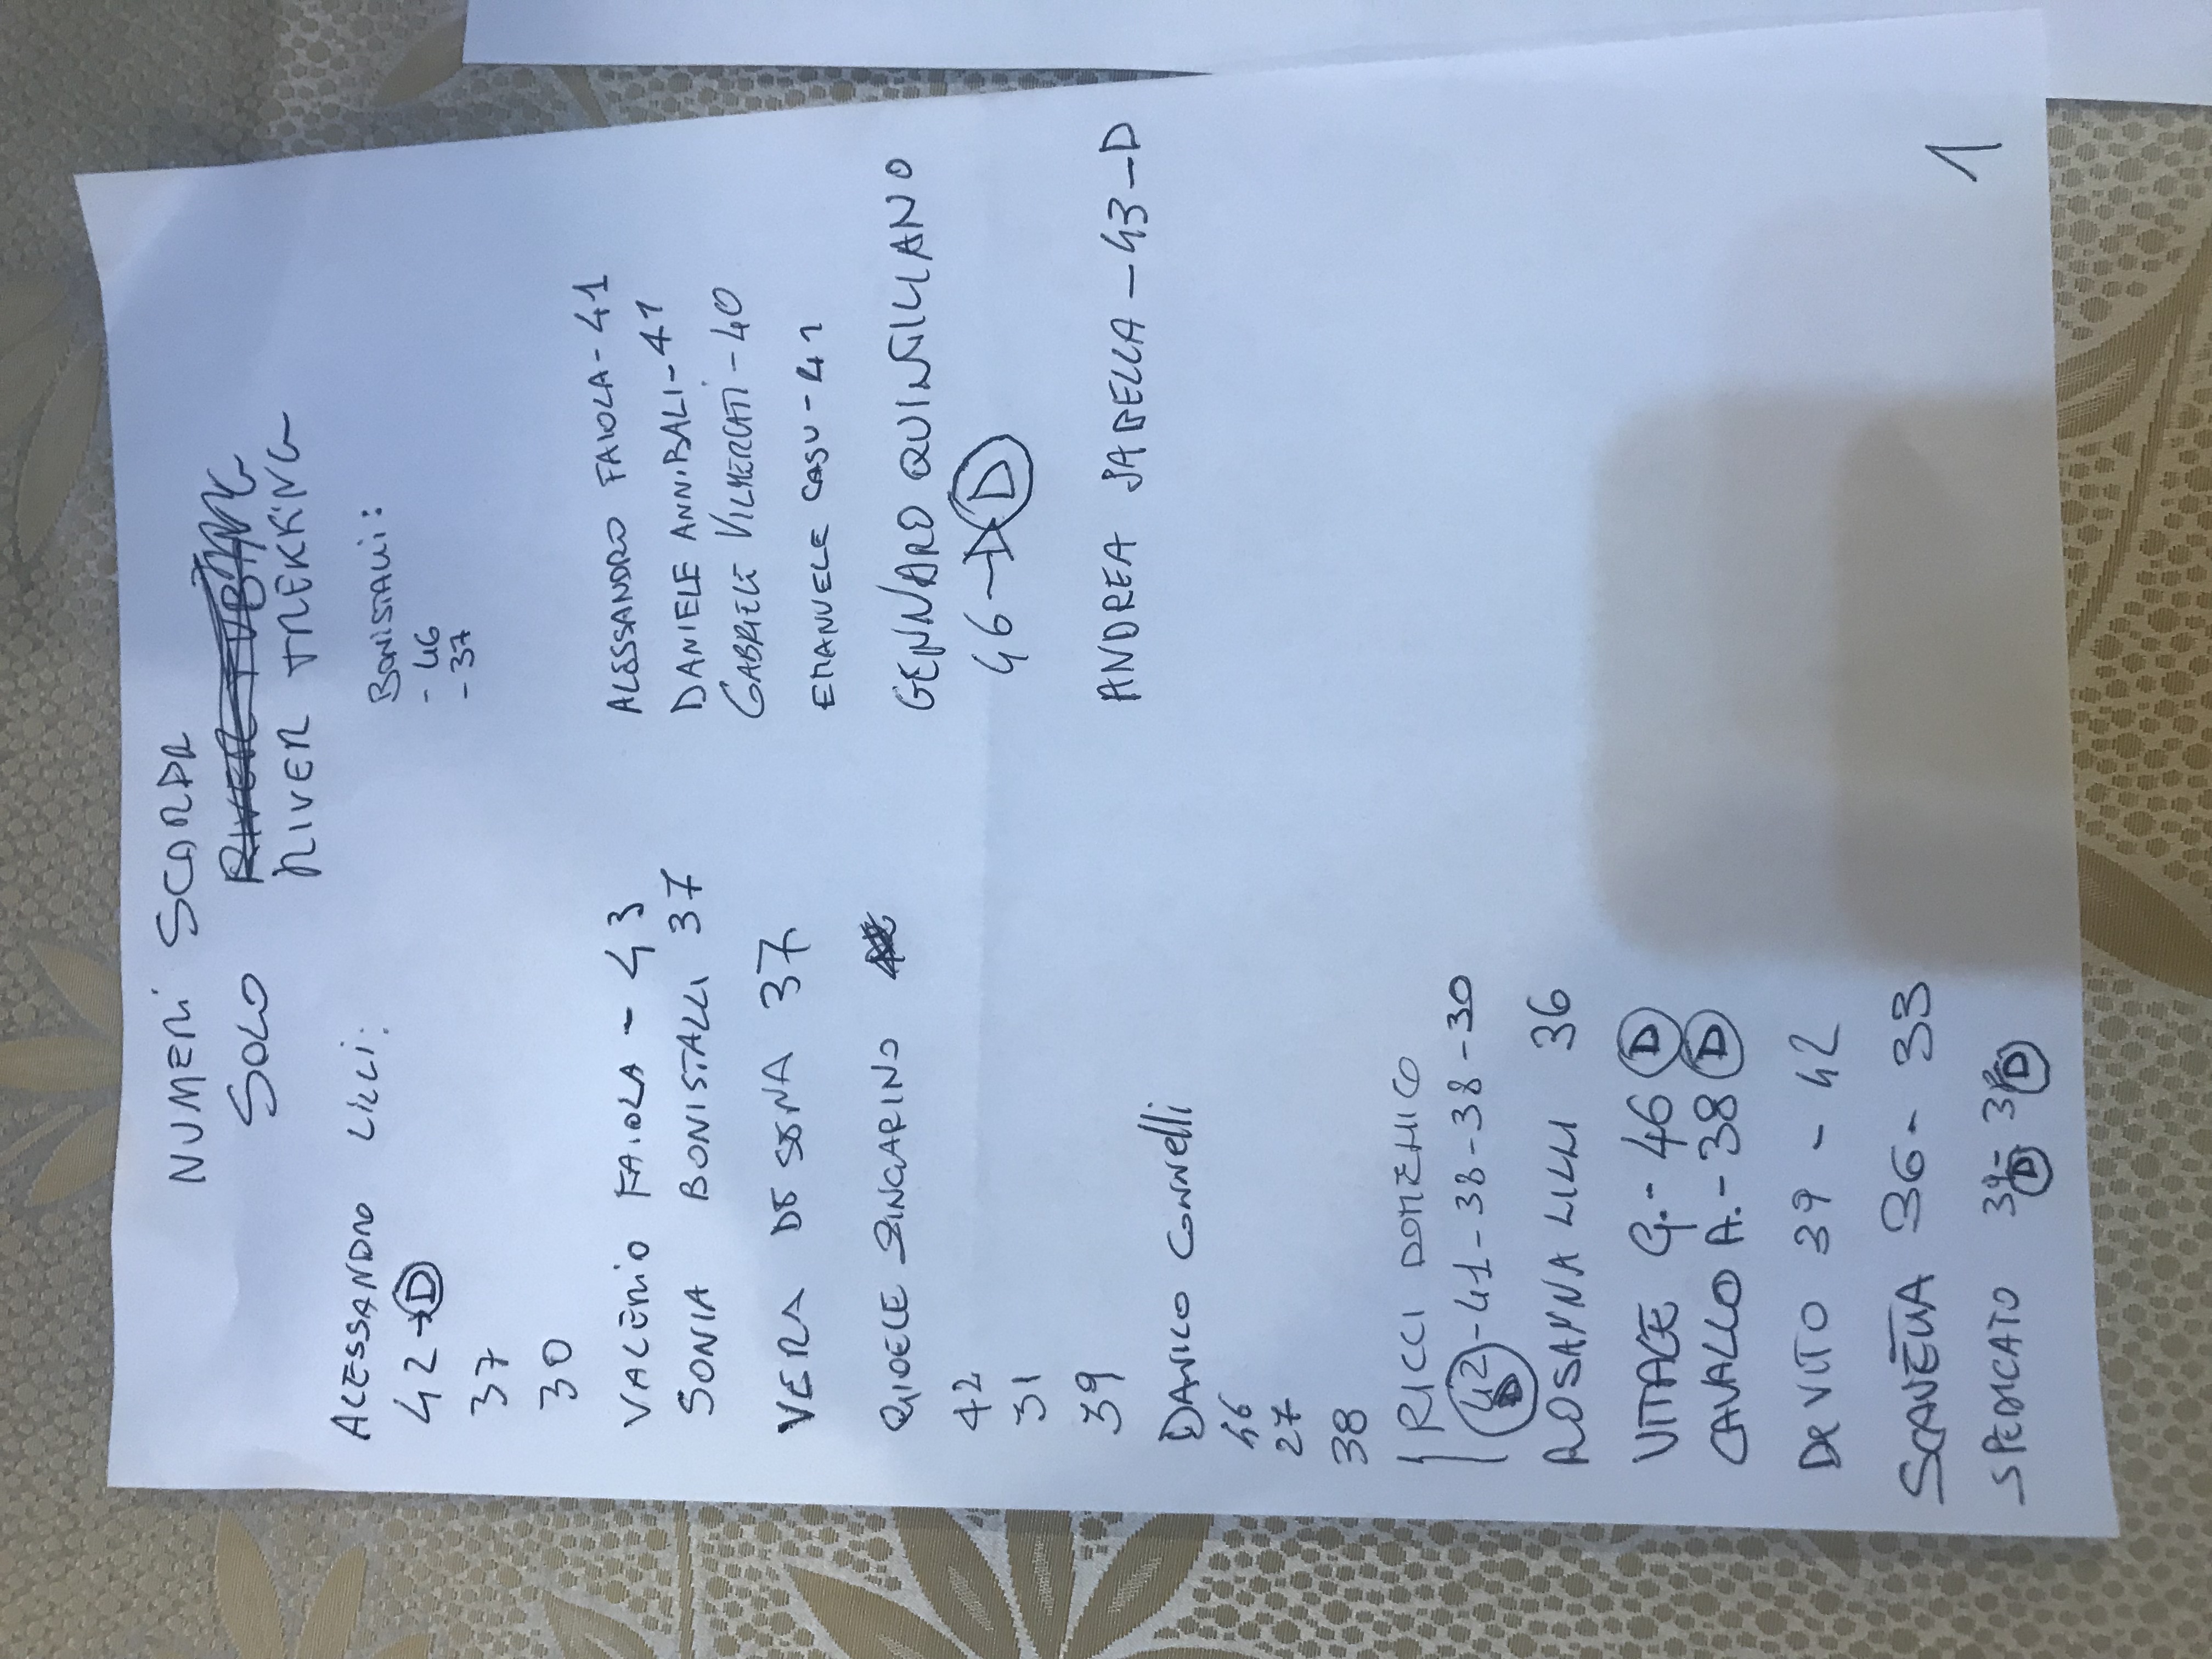 NUMERI SCARPE
SOLO
RIVER TREKKING
ALESSANDRO LILLI:
42→D
37
30
VALERIO FAIOLA - 43
SONIA BONISTALLI 37
VERA DE SONA 37
GIOELE SINGARINO
42
31
39
DANILO Connelli
46
27
38
RICCI DOMENICO
42 D-41-38-38-30
ROSANNA LILLI 36
VITALE G.- 46 D
CAVALLO A.- 38 D
DE VITO 39 - 42
SCANETIA 36 - 33
SPEDICATO D D
BONISTALLI:
- 46
- 37
ALESSANDRO FAIOLA - 41
DANIELE ANNIBALI - 41
GABRIELE VILMERCATI - 40
EMANUELE CASU - 41
GENNARO QUINTILIANO
46→D
ANDREA SABELLA - 43 - D
1